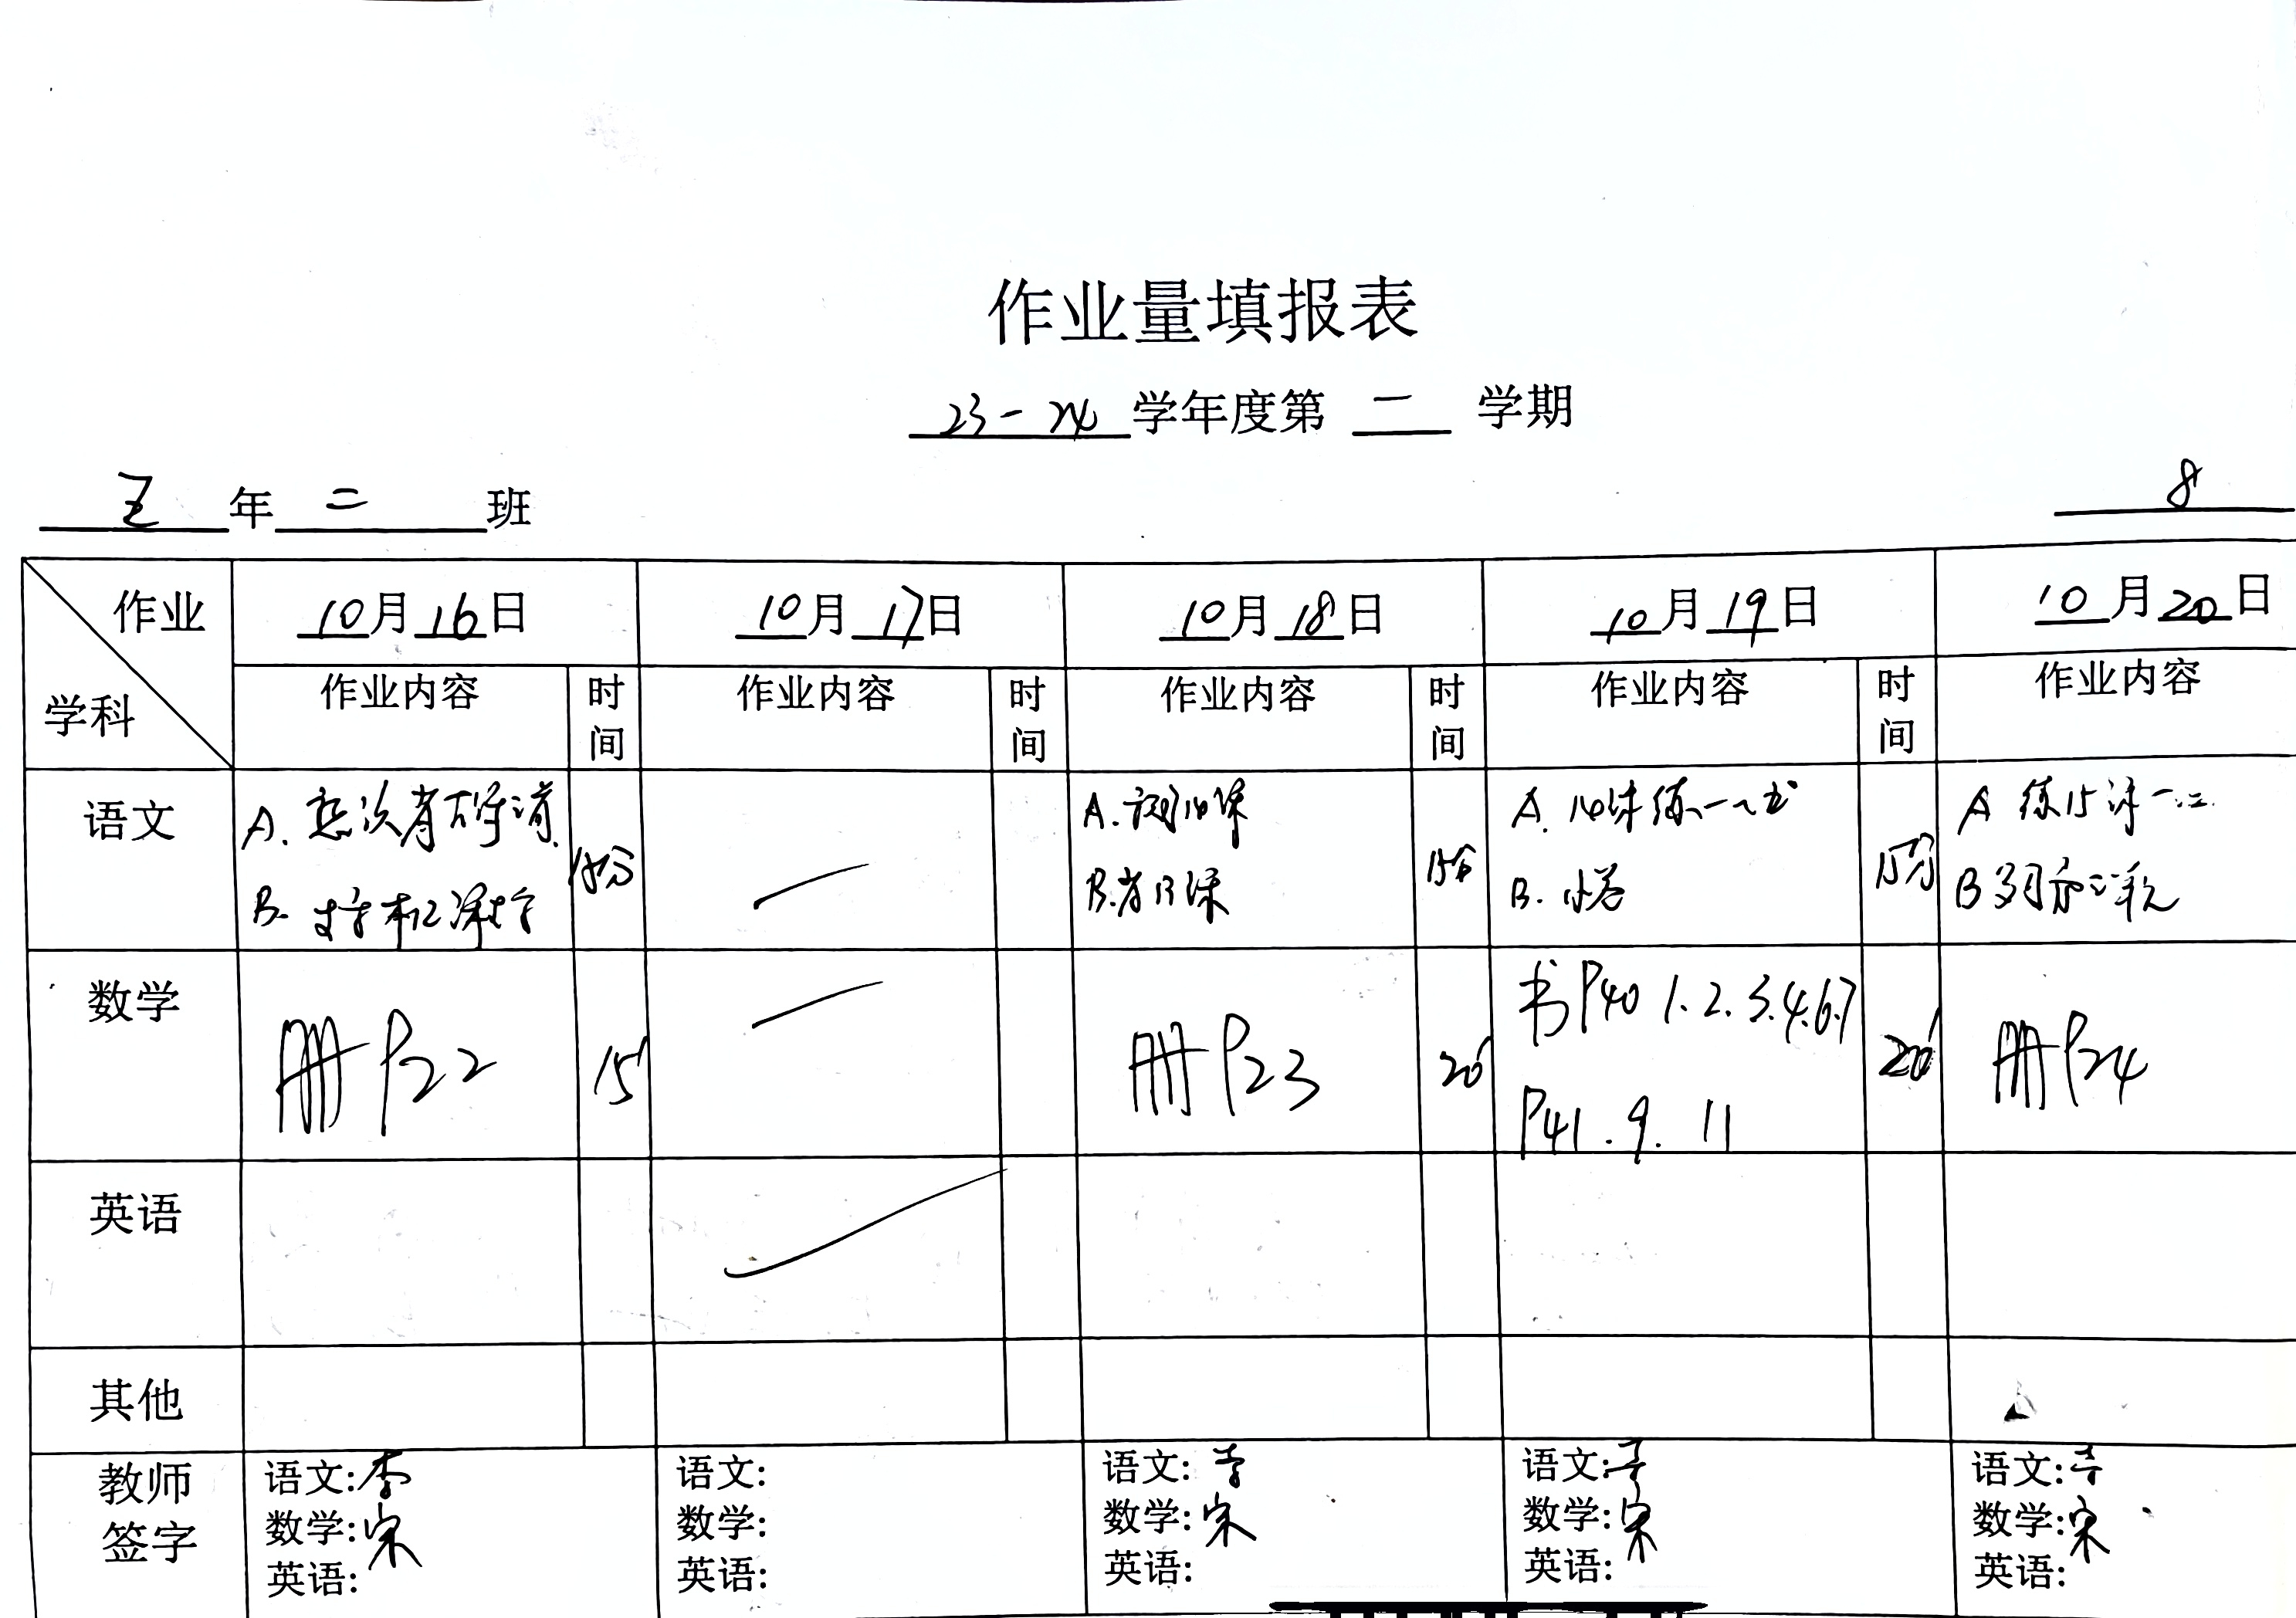 作业量填报表
23-24 学年度第 二 学期
五 年 二 班
8
作业 10月16日 10月17日 10月18日 10月19日 10月20日
学科 作业内容 时间 作业内容 时间 作业内容 时间 作业内容 时间 作业内容
语文
A.
B.
A.
B.
A.
B. 小卷
A 练15课
B
数学
册P22 15'
册P23 20'
书P40 1.2.3.4.6.7
P41.9.11
20'
册P24
英语
其他
教师
签字
语文:李
数学:宋
英语:
语文:
数学:
英语:
语文:李
数学:宋
英语:
语文:李
数学:宋
英语:
语文:李
数学:宋
英语: